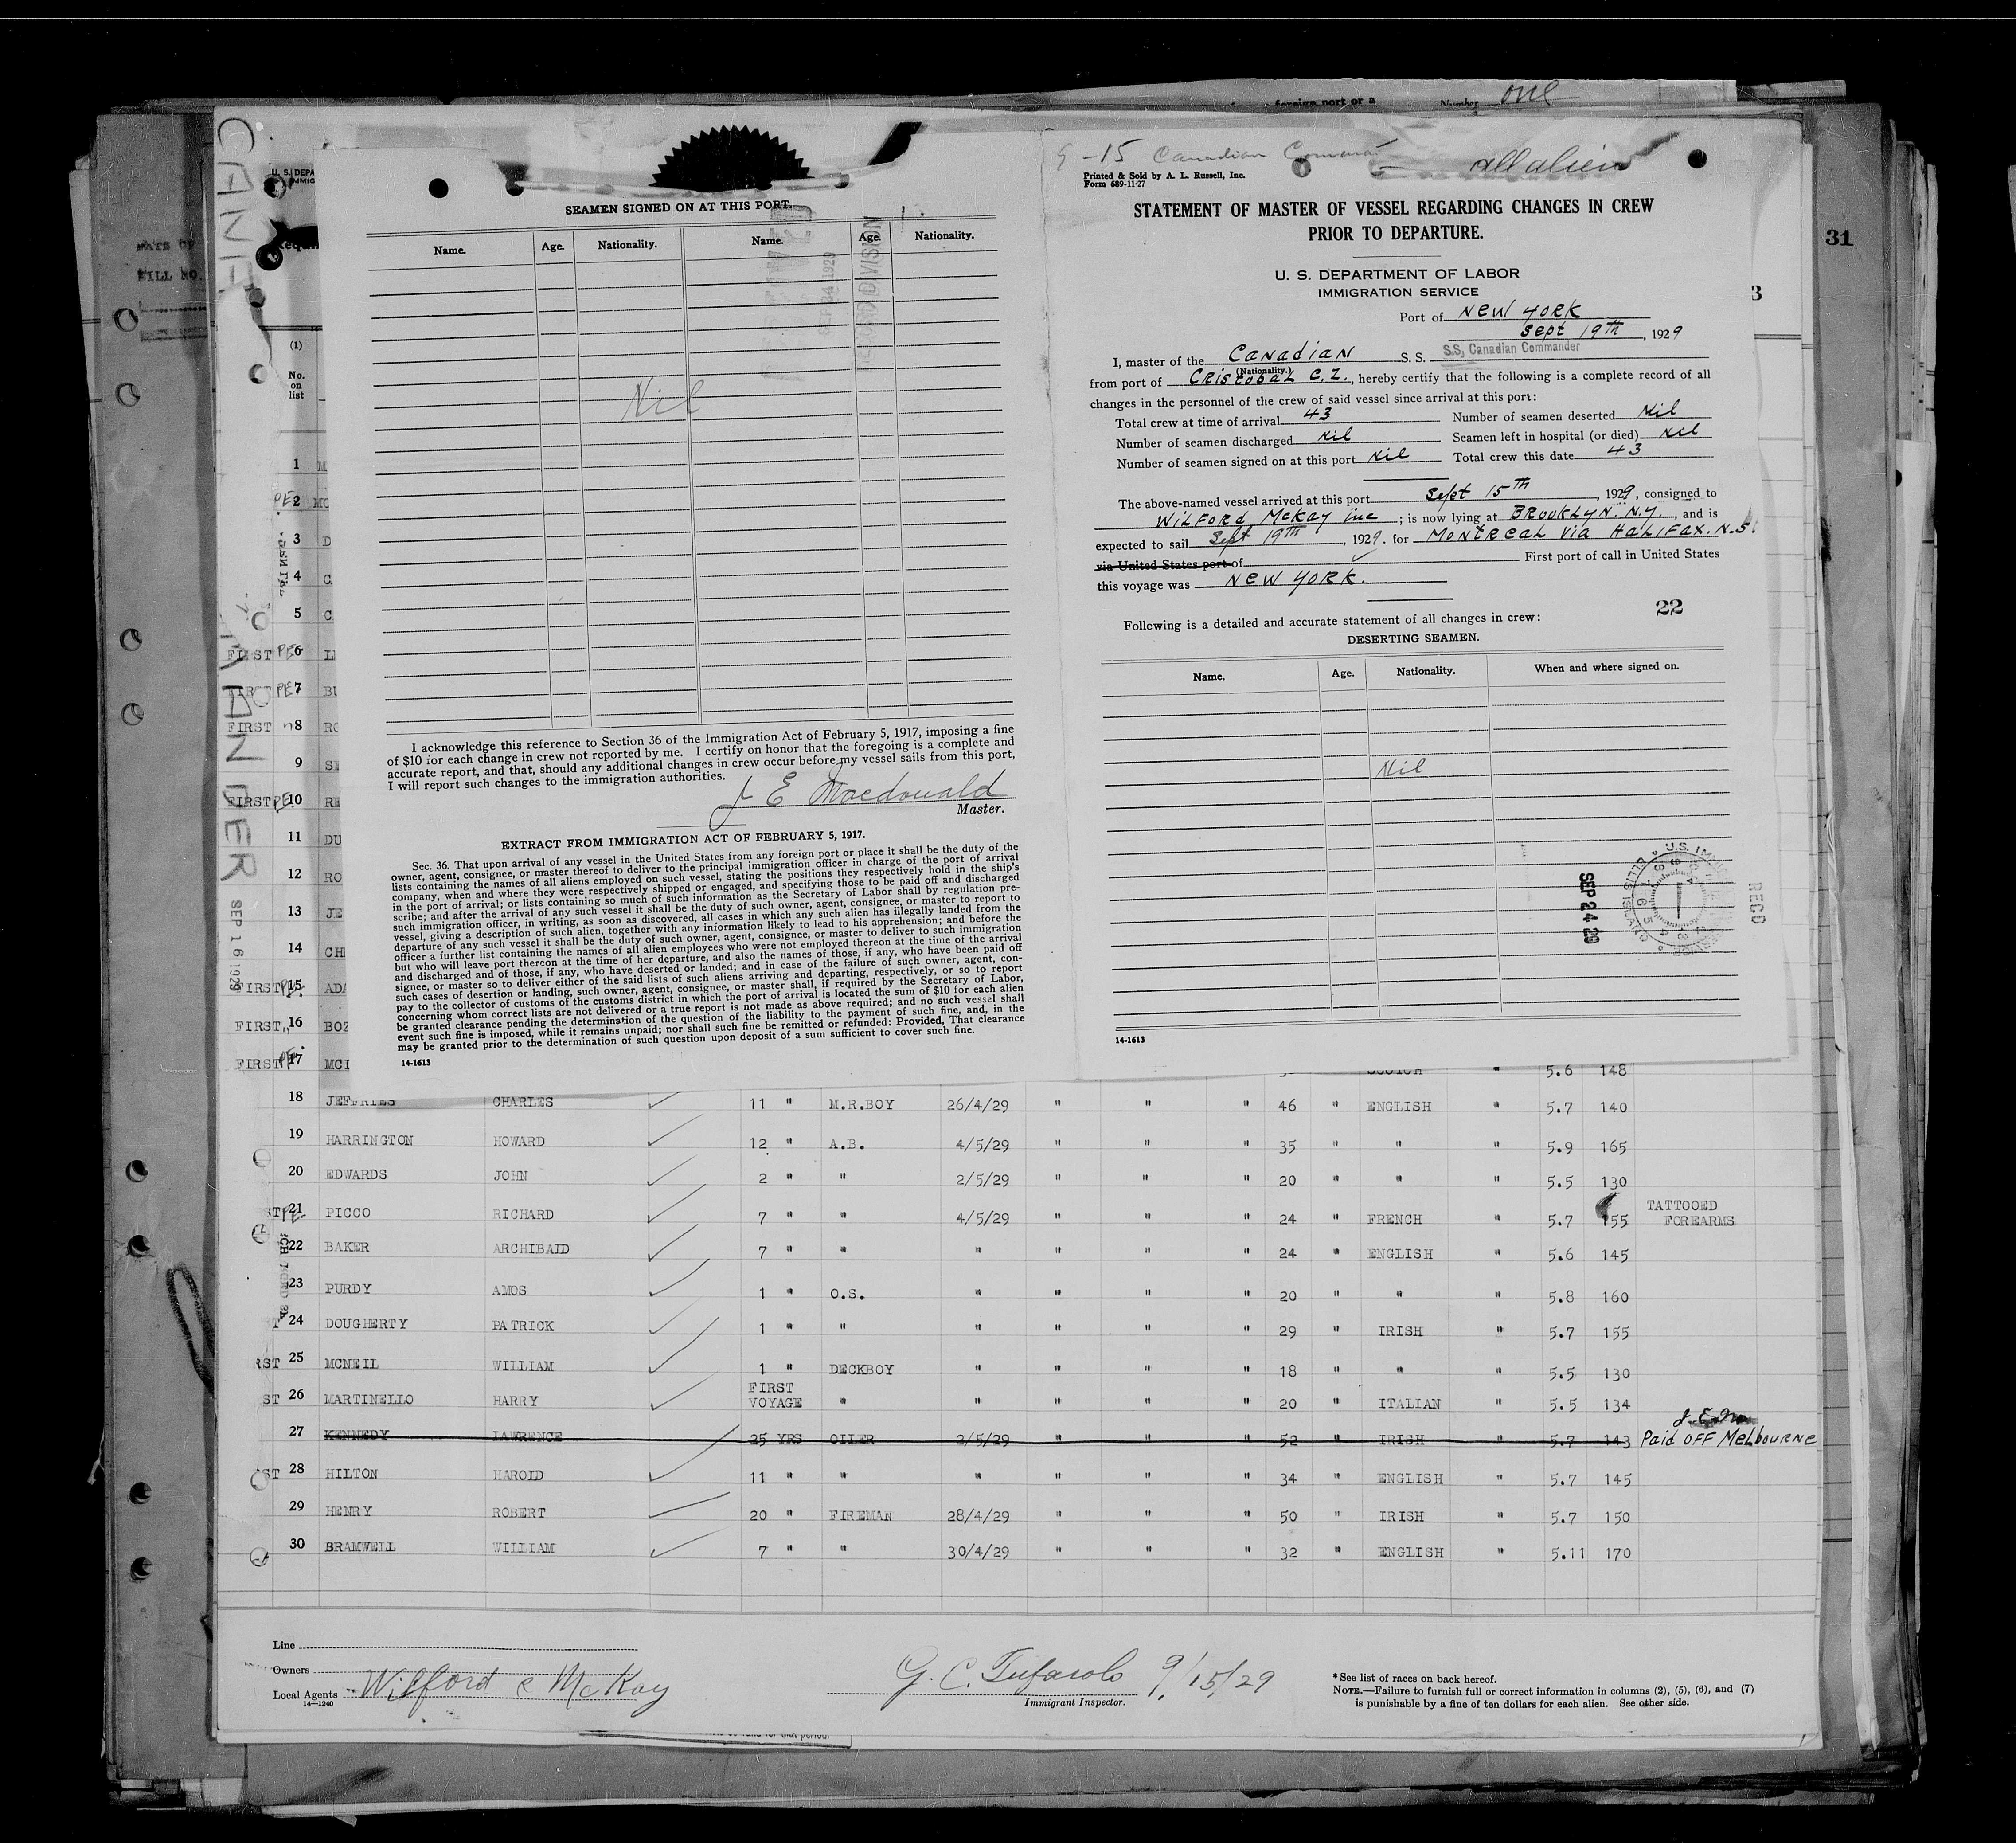 foreign port or a Number one
31
3
CANADIAN COMMANDER SEP 16 1929
SEAMEN SIGNED ON AT THIS PORT.
Name. Age. Nationality. Name. Age. Nationality.
SEP 24 1929
RECORD DIVISION
Nil
I acknowledge this reference to Section 36 of the Immigration Act of February 5, 1917, imposing a fine
of $10 for each change in crew not reported by me. I certify on honor that the foregoing is a complete and
accurate report, and that, should any additional changes in crew occur before my vessel sails from this port,
I will report such changes to the immigration authorities.
J E Macdonald
Master.
EXTRACT FROM IMMIGRATION ACT OF FEBRUARY 5, 1917.
Sec. 36. That upon arrival of any vessel in the United States from any foreign port or place it shall be the duty of the
owner, agent, consignee, or master thereof to deliver to the principal immigration officer in charge of the port of arrival
lists containing the names of all aliens employed on such vessel, stating the positions they respectively hold in the ship's
company, when and where they were respectively shipped or engaged, and specifying those to be paid off and discharged
in the port of arrival; or lists containing so much of such information as the Secretary of Labor shall by regulation pre-
scribe; and after the arrival of any such vessel it shall be the duty of such owner, agent, consignee, or master to report to
such immigration officer, in writing, as soon as discovered, all cases in which any such alien has illegally landed from the
vessel, giving a description of such alien, together with any information likely to lead to his apprehension; and before the
departure of any such vessel it shall be the duty of such owner, agent, consignee, or master to deliver to such immigration
officer a further list containing the names of all alien employees who were not employed thereon at the time of the arrival
but who will leave port thereon at the time of her departure, and also the names of those, if any, who have been paid off
and discharged and of those, if any, who have deserted or landed; and in case of the failure of such owner, agent, con-
signee, or master so to deliver either of the said lists of such aliens arriving and departing, respectively, or so to report
such cases of desertion or landing, such owner, agent, consignee, or master shall, if required by the Secretary of Labor,
pay to the collector of customs of the customs district in which the port of arrival is located the sum of $10 for each alien
concerning whom correct lists are not delivered or a true report is not made as above required; and no such vessel shall
be granted clearance pending the determination of the question of the liability to the payment of such fine, and, in the
event such fine is imposed, while it remains unpaid; nor shall such fine be remitted or refunded: Provided, That clearance
may be granted prior to the determination of such question upon deposit of a sum sufficient to cover such fine.
14-1613
9-15 Canadian
all aliens
Printed & Sold by A. L. Russell, Inc.
Form 689-11-27
STATEMENT OF MASTER OF VESSEL REGARDING CHANGES IN CREW
PRIOR TO DEPARTURE.
U. S. DEPARTMENT OF LABOR
IMMIGRATION SERVICE
Port of NEW YORK
Sept 19th, 1929
I, master of the CANADIAN S. S. S.S. Canadian Commander
(Nationality.)
from port of CRISTOBAL C.Z., hereby certify that the following is a complete record of all
changes in the personnel of the crew of said vessel since arrival at this port:
Total crew at time of arrival 43 Number of seamen deserted Nil
Number of seamen discharged Nil Seamen left in hospital (or died) Nil
Number of seamen signed on at this port Nil Total crew this date 43
The above-named vessel arrived at this port Sept 15th, 1929, consigned to
WILFORD McKay inc; is now lying at BROOKLYN. N.Y., and is
expected to sail Sept 19th, 1929. for MONTREAL via HALIFAX. N.S.
via United States port of First port of call in United States
this voyage was NEW YORK.
22
Following is a detailed and accurate statement of all changes in crew:
DESERTING SEAMEN.
Name. Age. Nationality. When and where signed on.
Nil
SEP 24 29
RECD
14-1613
(1)
No.
on
list
1 M
2 MC
3 D
4 C
5 C
FIRST 6
FIRST 7
FIRST 8 RO
9
FIRST 10 RE
11 DU
12 RO
13 JE
14 CH
FIRST 15 ADA
FIRST 16 BOZ
FIRST 17 MCI SCOTCH " 5.6 148
18 JEFFRIES CHARLES 11 " M.R.BOY 26/4/29 " " " 46 " ENGLISH " 5.7 140
19 HARRINGTON HOWARD 12 " A.B. 4/5/29 " " " 35 " " " 5.9 165
20 EDWARDS JOHN 2 " " 2/5/29 " " " 20 " " " 5.5 130
21 PICCO RICHARD 7 " " 4/5/29 " " " 24 " FRENCH " 5.7 155 TATTOOED FOREARMS
22 BAKER ARCHIBALD 7 " " " " " " 24 " ENGLISH " 5.6 145
23 PURDY AMOS 1 " O.S. " " " " 20 " " " 5.8 160
24 DOUGHERTY PATRICK 1 " " " " " " 29 " IRISH " 5.7 155
25 MCNEIL WILLIAM 1 " DECKBOY " " " " 18 " " " 5.5 130
26 MARTINELLO HARRY FIRST VOYAGE " " " " " 20 " ITALIAN " 5.5 134
27 KENNEDY LAWRENCE 25 YRS OILER 2/5/29 " " " 52 " IRISH " 5.7 143 Paid OFF MELBOURNE
28 HILTON HAROLD 11 " " " " " " 34 " ENGLISH " 5.7 145
29 HENRY ROBERT 20 " FIREMAN 28/4/29 " " " 50 " IRISH " 5.7 150
30 BRAMWELL WILLIAM 7 " " 30/4/29 " " " 32 " ENGLISH " 5.11 170
Line
Owners
Local Agents Wilford & McKay
14-1240
G. C. Tufarolo 9/15/29
Immigrant Inspector.
*See list of races on back hereof.
NOTE.—Failure to furnish full or correct information in columns (2), (5), (6), and (7)
is punishable by a fine of ten dollars for each alien. See other side.